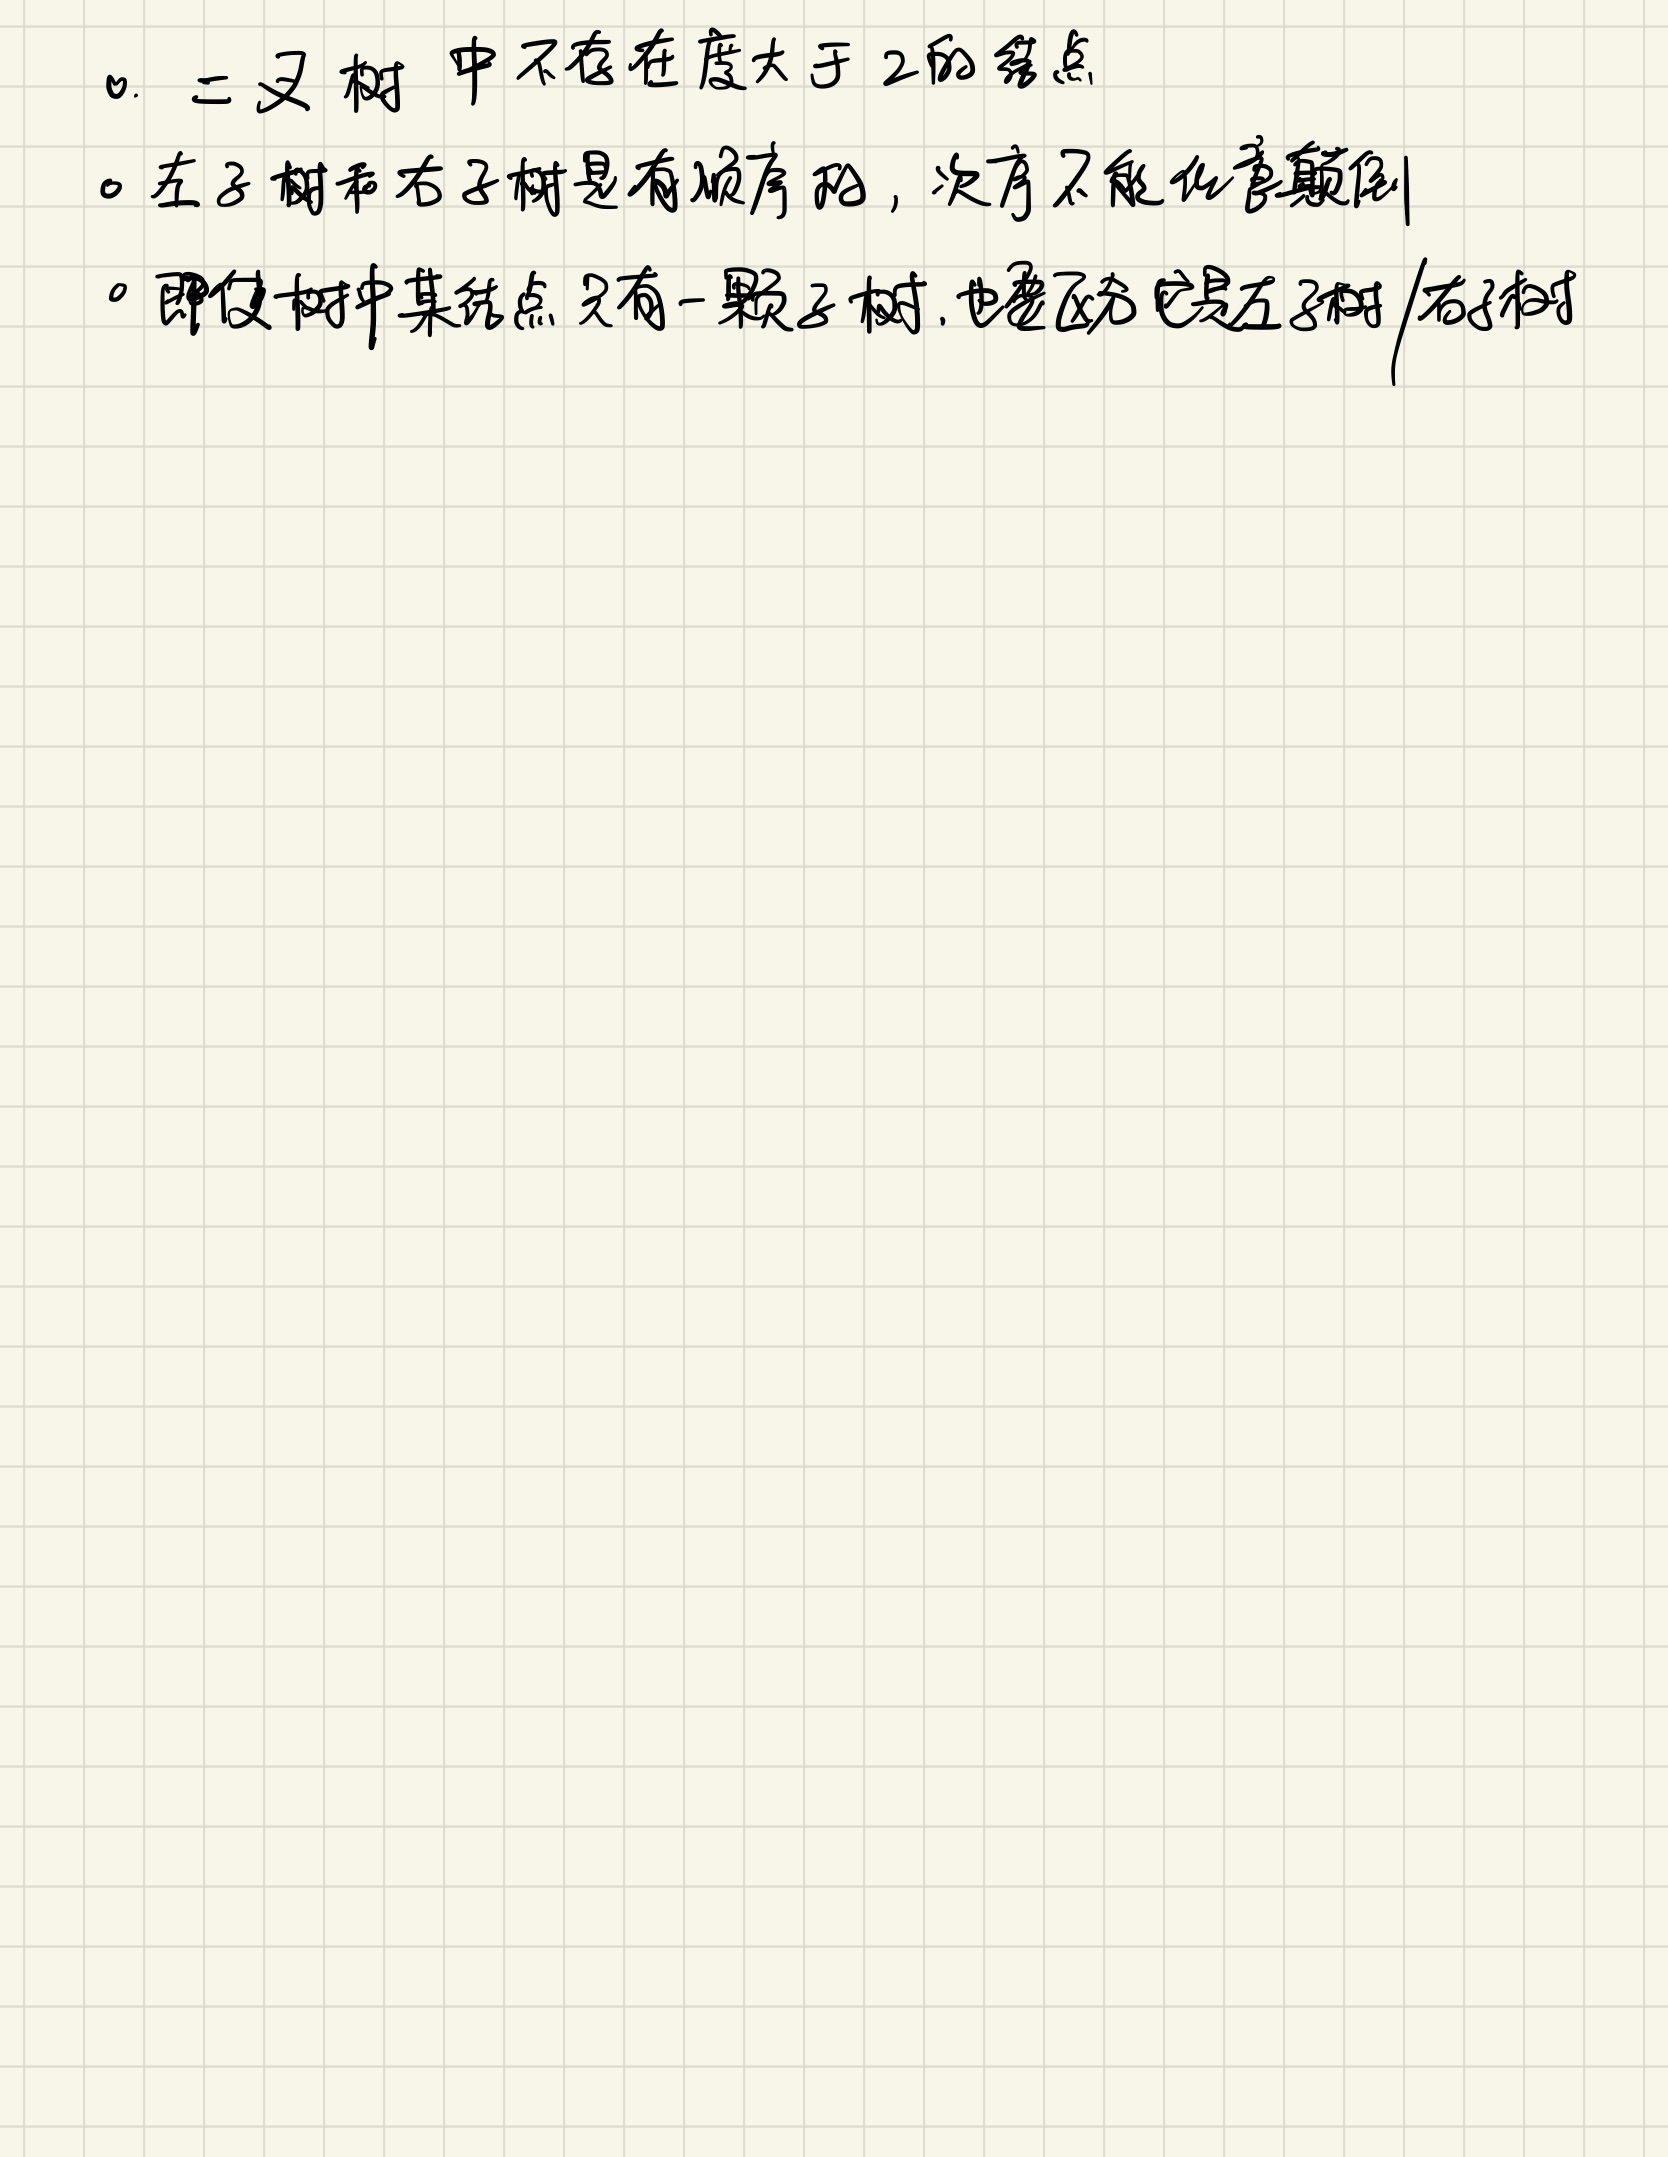 二叉树中不存在度大于2的结点
左子树和右子树是有顺序的,次序不能任意颠倒
即使树中某结点只有一颗子树.也要区分它是左子树/右子树